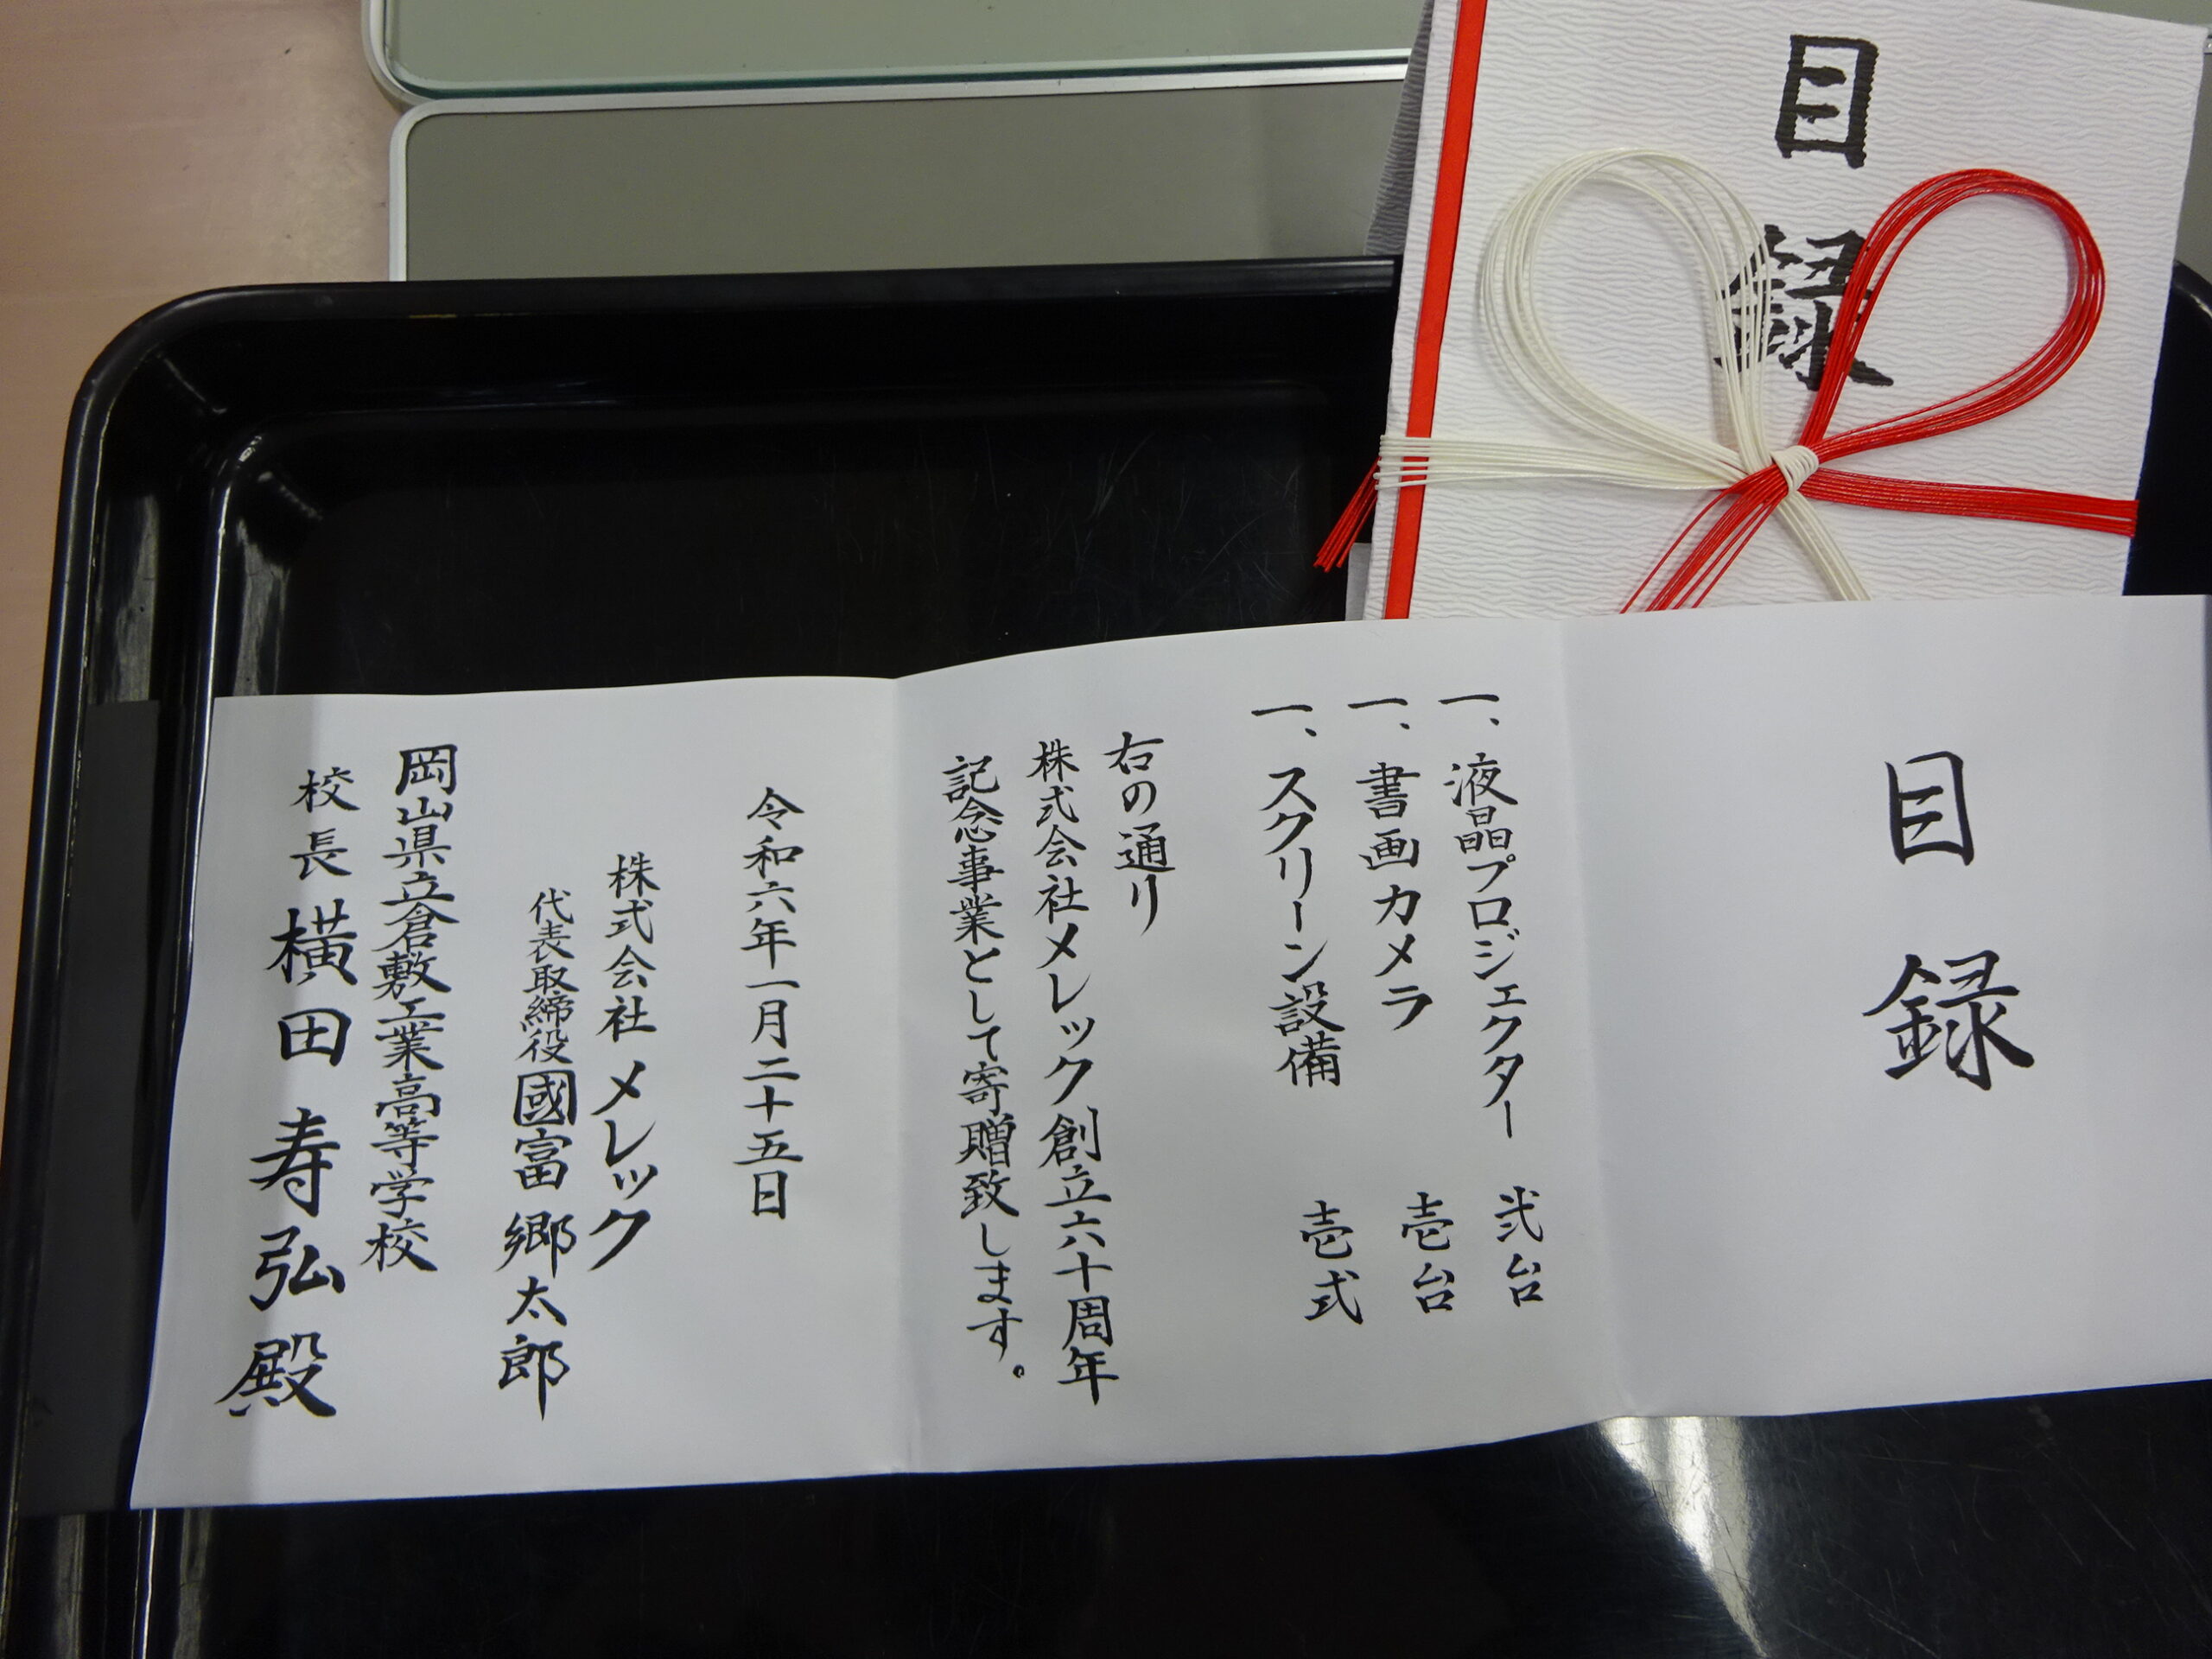 目録
目録
一、液晶プロジェクター 弐台
一、書画カメラ 壱台
一、スクリーン設備 壱式
右の通り
株式会社メレック創立六十周年
記念事業として寄贈致します。
令和六年一月二十五日
株式会社メレック
代表取締役國富郷太郎
岡山県立倉敷工業高等学校
校長横田寿弘殿